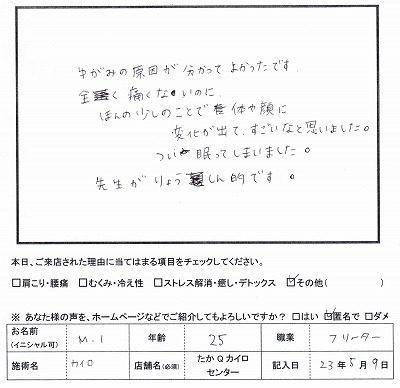 ゆがみの原因が分かってよかったです。
全く痛くないのに、
ほんの少しのことで体や顔に
変化が出て、すごいなと思いました。
つい眠ってしまいました。
先生がりょうしん的です。
本日、ご来店された理由に当てはまる項目をチェックしてください。
□肩こり・腰痛 □むくみ・冷え性 □ストレス解消・癒し・デトックス ☑その他( )
※ あなた様の声を、ホームページなどでご紹介してもよろしいですか? □はい ☑匿名で □ダメ
お名前(イニシャル可) M.I 年齢 25 職業 フリーター
施術名 カイロ 店舗名(必須) たかQカイロセンター 記入日 23年5月9日